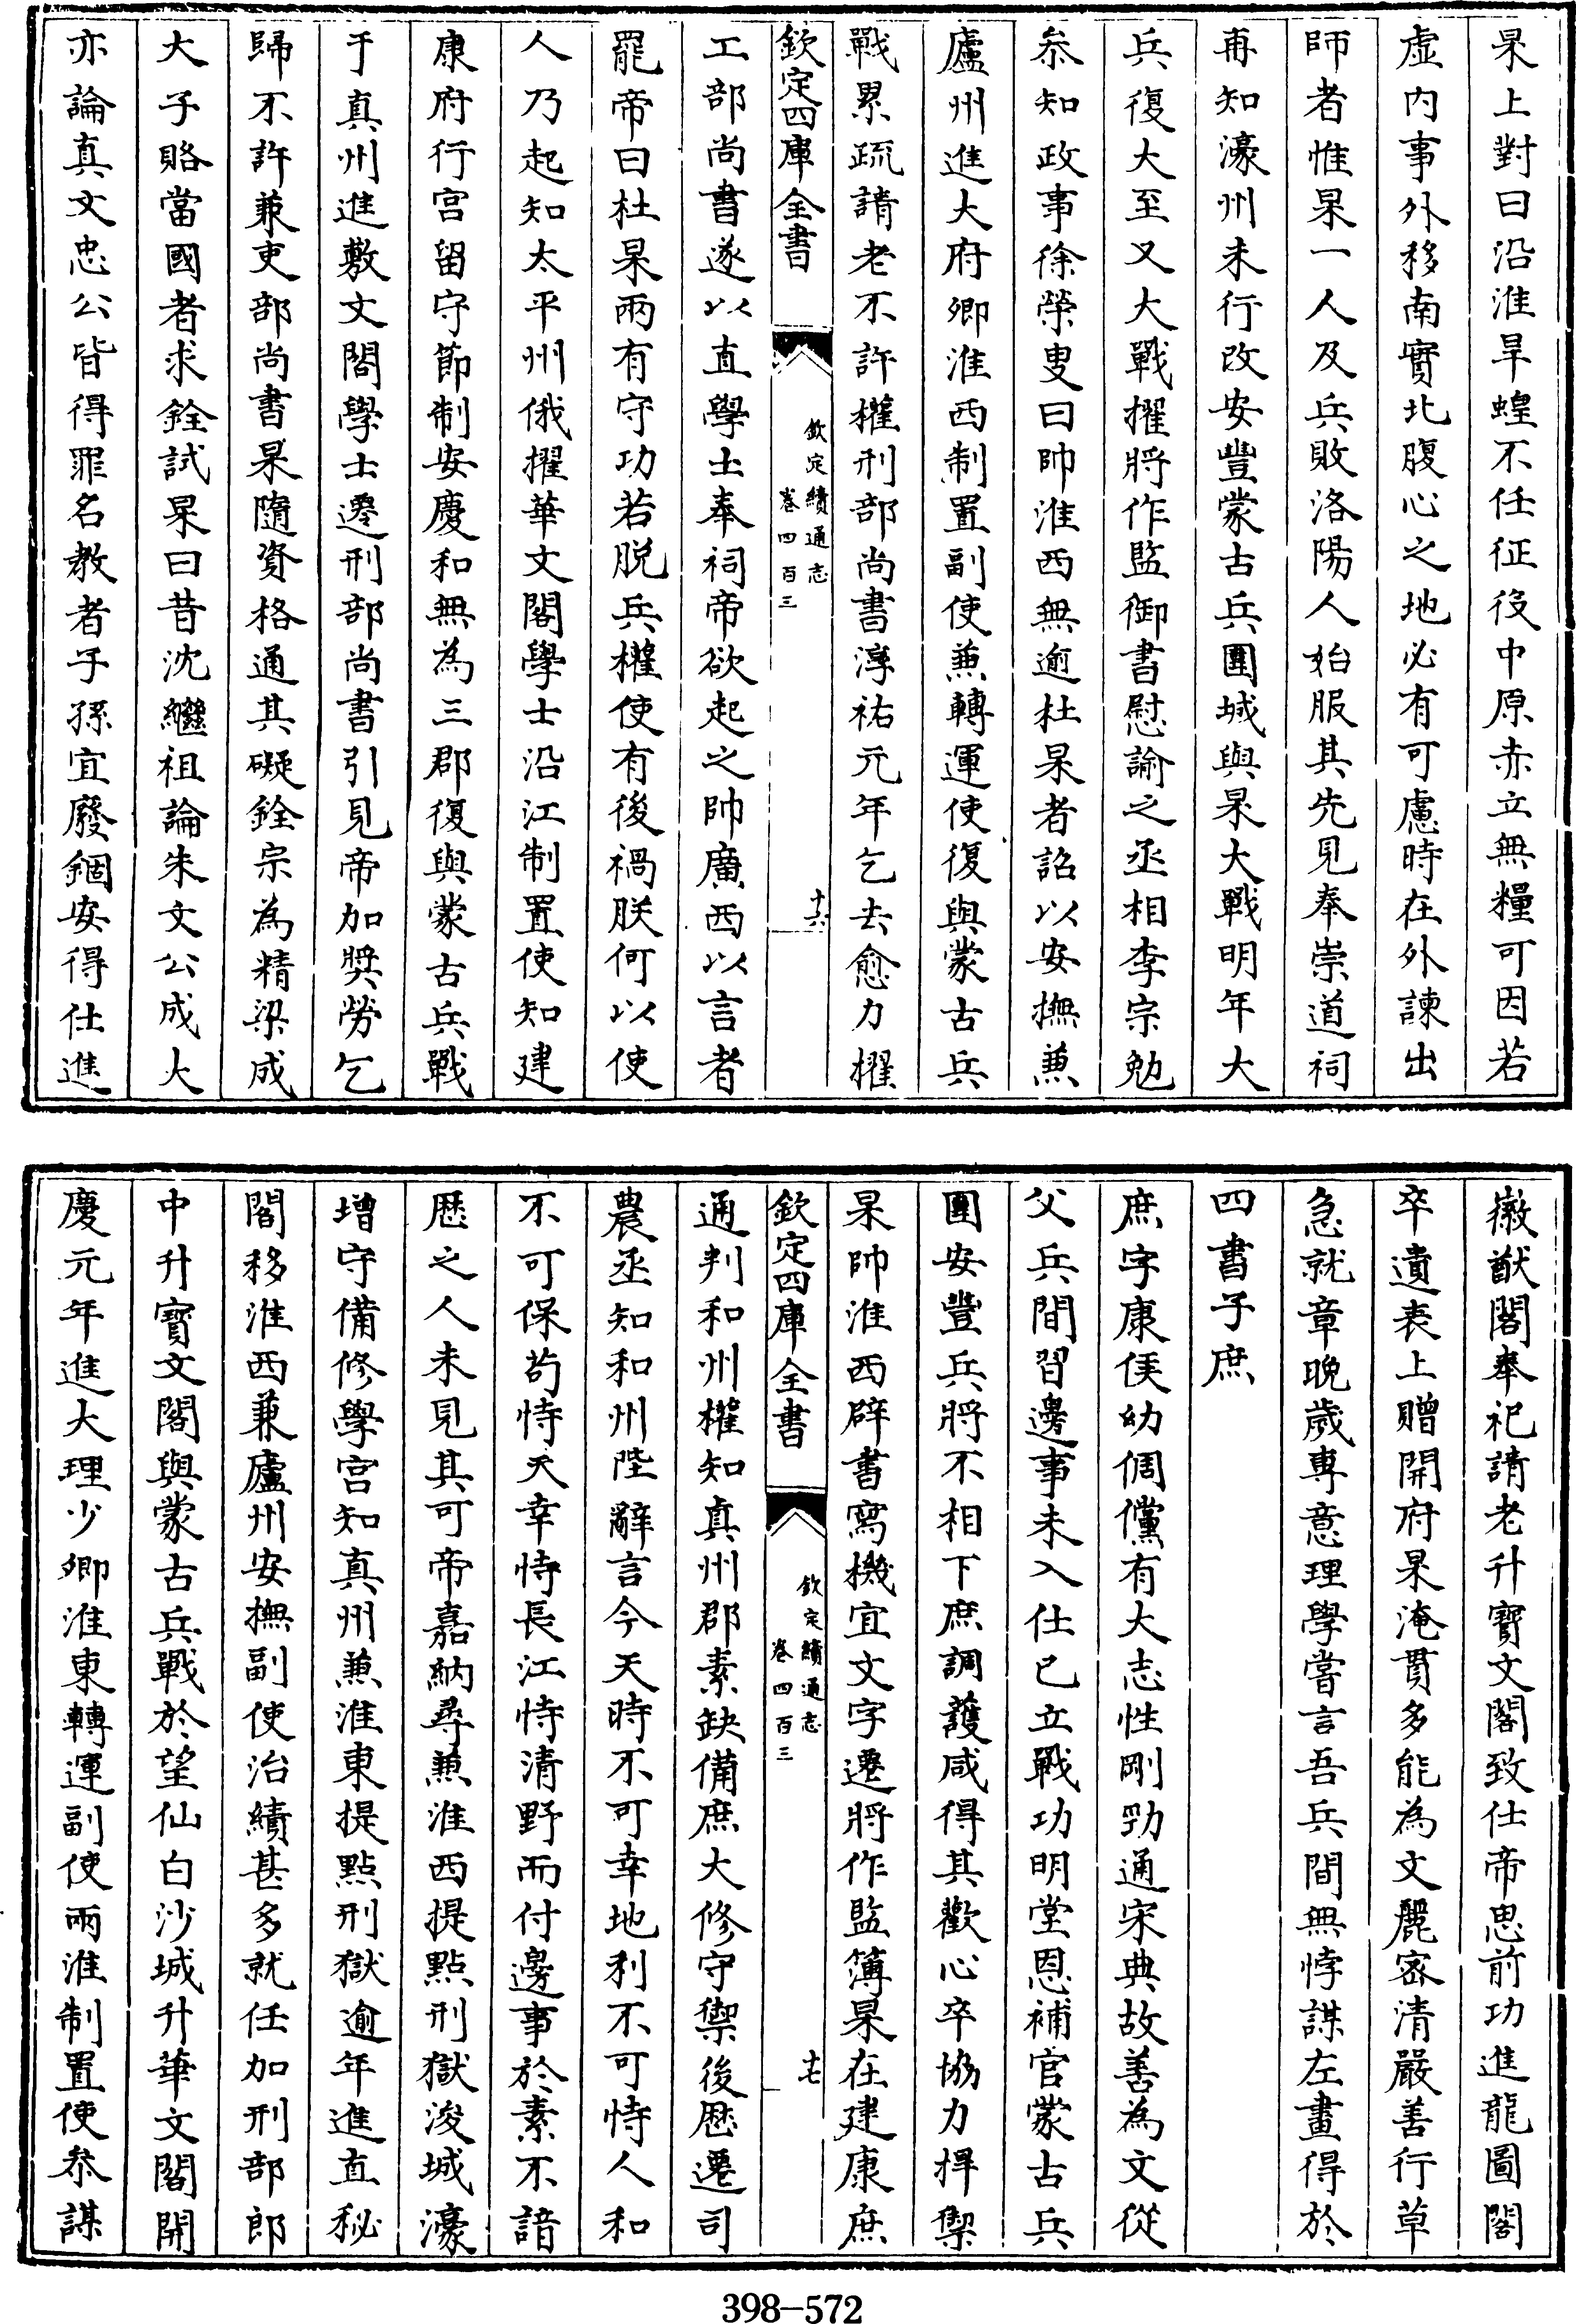 杲上對曰沿淮旱蝗不任征役中原赤立無糧可因若
虛內事外移南實北腹心之地必有可慮時在外諫出
師者惟杲一人及兵敗洛陽人始服其先見奉崇道祠
再知濠州未行改安豐蒙古兵圍城與杲大戰明年大
兵復大至又大戰擢將作監御書慰諭之丞相李宗勉
叅知政事徐榮叟曰帥淮西無逾杜杲者詔以安撫兼
廬州進大府卿淮西制置副使兼轉運使復與蒙古兵
戰累疏請老不許權刑部尚書淳祐元年乞去愈力擢
欽定四庫全書
欽定續通志
卷四百三
十六
工部尚書遂以直學士奉祠帝欲起之帥廣西以言者
罷帝曰杜杲兩有守功若脱兵權使有後禍朕何以使
人乃起知太平州俄擢華文閣學士沿江制置使知建
康府行宫留守節制安慶和無為三郡復與蒙古兵戰
于真州進敷文閣學士遷刑部尚書引見帝加奬勞乞
歸不許兼吏部尚書杲隨資格通其礙銓宗為精梁成
大子賂當國者求銓試杲曰昔沈繼祖論朱文公成大
亦論真文忠公皆得罪名教者子孫宜廢錮安得仕進
徽猷閣奉祀請老升寶文閣致仕帝思前功進龍圖閣
卒遺表上贈開府杲淹貫多能為文麗密清嚴善行草
急就章晚歲專意理學嘗言吾兵間無悖謀左畫得於
四書子庶
庶字康侯幼倜儻有大志性剛勁通宋典故善為文從
父兵間習邊事未入仕已立戰功明堂恩補官蒙古兵
圍安豐兵將不相下庶調護咸得其歡心卒協力捍禦
杲帥淮西辟書寫機宜文字遷將作監簿杲在建康庶
欽定四庫全書
欽定續通志
卷四百三
十七
通判和州權知真州郡素缺備庶大修守禦後歷遷司
農丞知和州陛辭言今天時不可幸地利不可恃人和
不可保苟恃天幸恃長江恃清野而付邊事於素不諳
歷之人未見其可帝嘉納尋兼淮西提點刑獄浚城濠
增守備修學宫知真州兼淮東提點刑獄逾年進直秘
閣移淮西兼廬州安撫副使治績甚多就任加刑部郎
中升寶文閣與蒙古兵戰於望仙白沙城升華文閣開
慶元年進大理少卿淮東轉運副使兩淮制置使叅謀
398-572